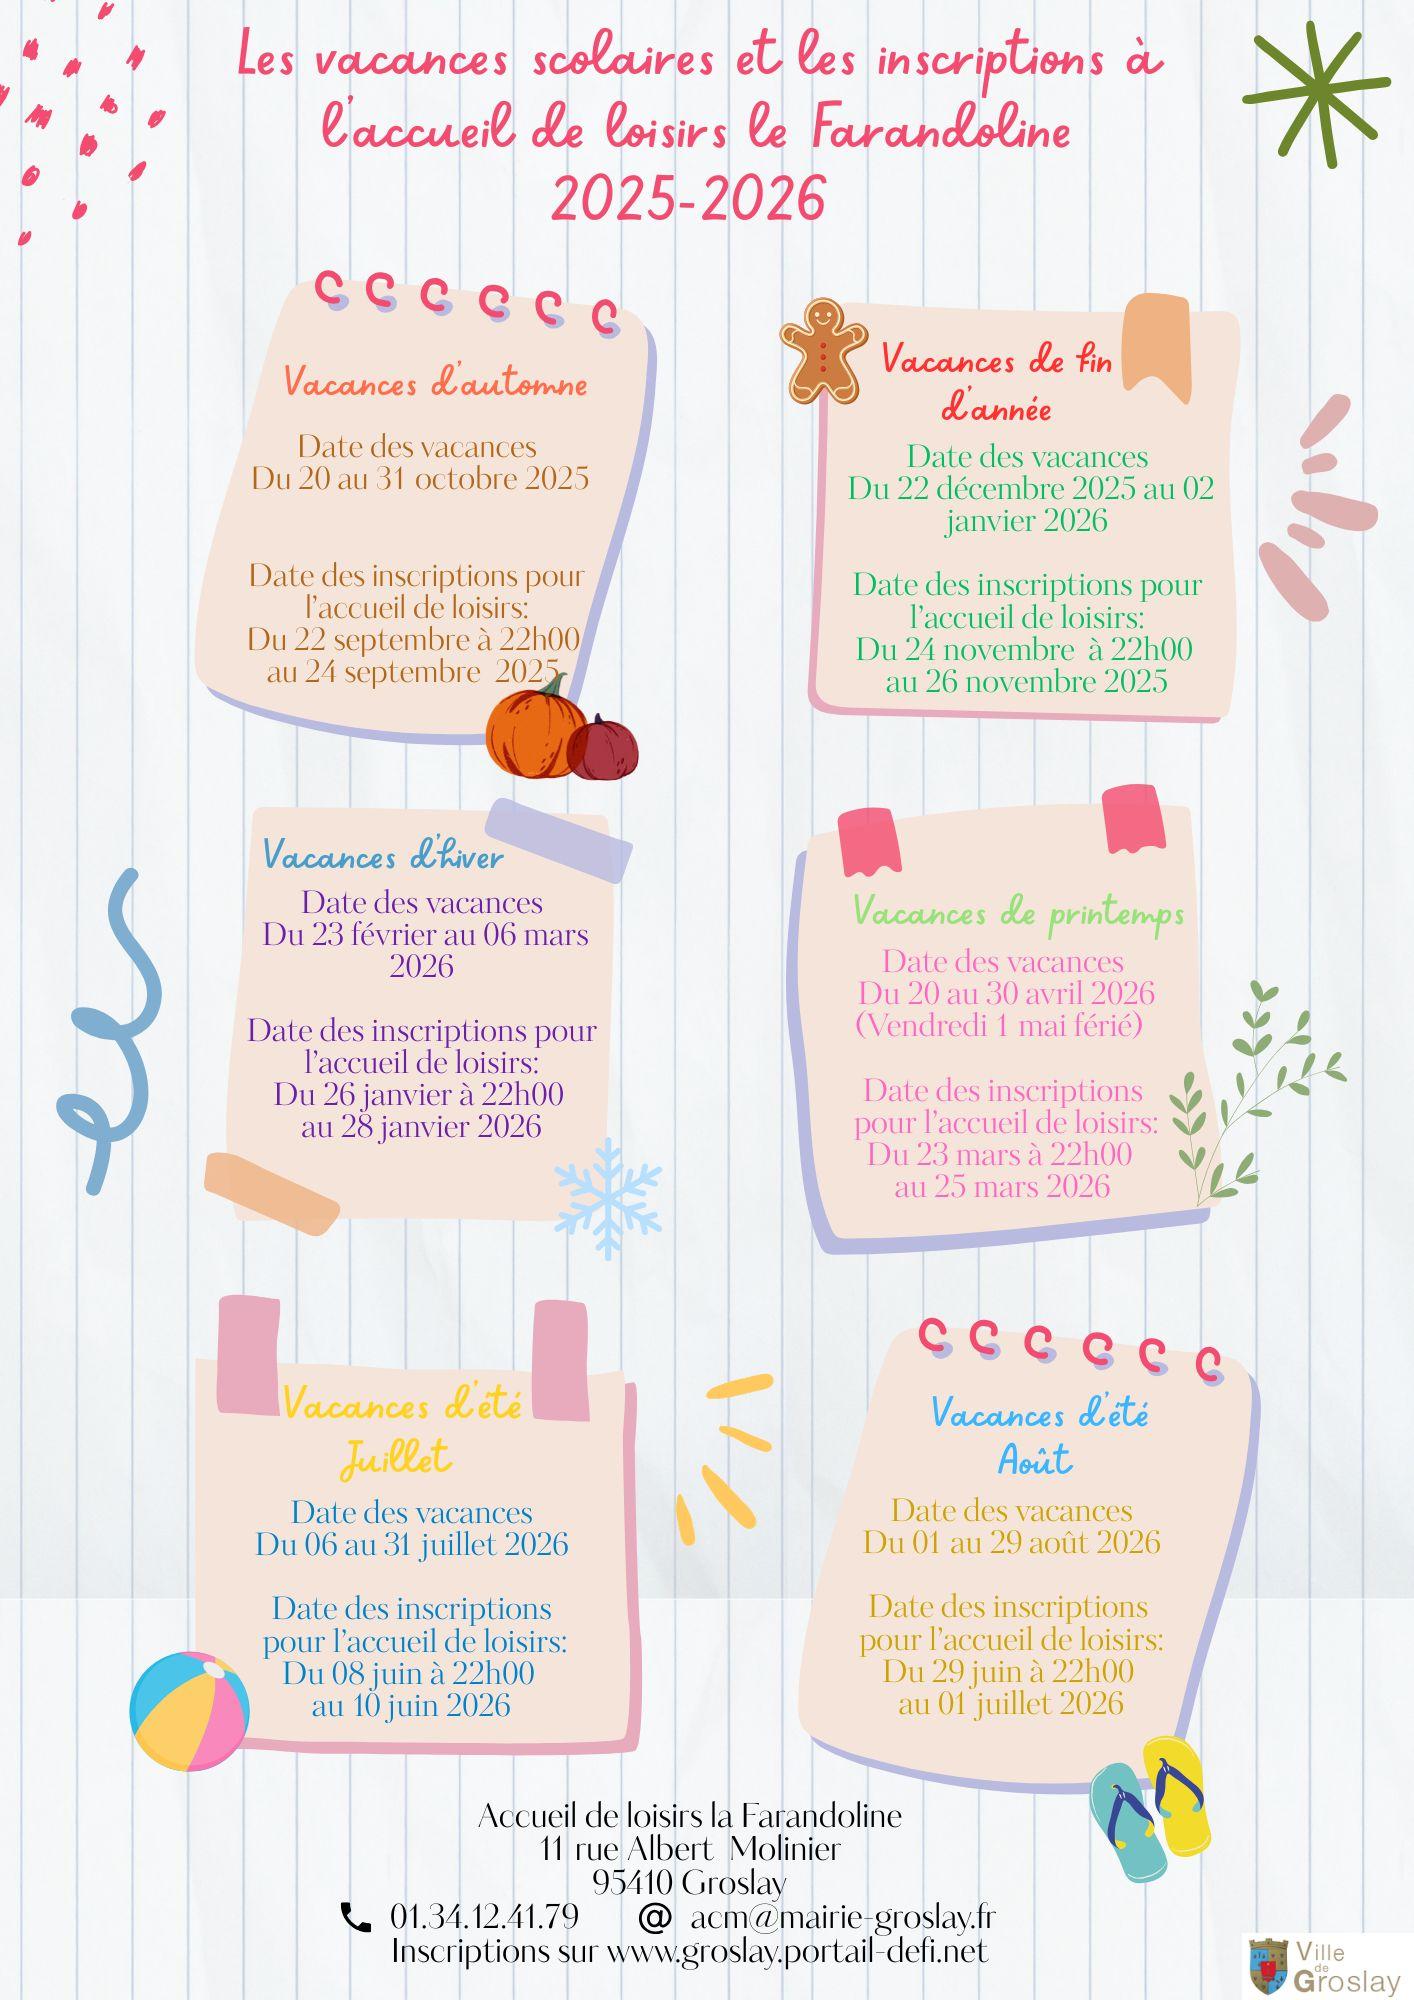 Les vacances scolaires et les inscriptions à
l'accueil de loisirs le Farandoline
2025-2026
Vacances d'automne
Date des vacances
Du 20 au 31 octobre 2025
Date des inscriptions pour
l'accueil de loisirs:
Du 22 septembre à 22h00
au 24 septembre 2025
Vacances de fin
d'année
Date des vacances
Du 22 décembre 2025 au 02
janvier 2026
Date des inscriptions pour
l'accueil de loisirs:
Du 24 novembre à 22h00
au 26 novembre 2025
Vacances d'hiver
Date des vacances
Du 23 février au 06 mars
2026
Date des inscriptions pour
l'accueil de loisirs:
Du 26 janvier à 22h00
au 28 janvier 2026
Vacances de printemps
Date des vacances
Du 20 au 30 avril 2026
(Vendredi 1 mai férié)
Date des inscriptions
pour l'accueil de loisirs:
Du 23 mars à 22h00
au 25 mars 2026
Vacances d'été
Juillet
Date des vacances
Du 06 au 31 juillet 2026
Date des inscriptions
pour l'accueil de loisirs:
Du 08 juin à 22h00
au 10 juin 2026
Vacances d'été
Août
Date des vacances
Du 01 au 29 août 2026
Date des inscriptions
pour l'accueil de loisirs:
Du 29 juin à 22h00
au 01 juillet 2026
Accueil de loisirs la Farandoline
11 rue Albert Molinier
95410 Groslay
01.34.12.41.79 @ acm@mairie-groslay.fr
Inscriptions sur www.groslay.portail-defi.net
Ville
de
Groslay